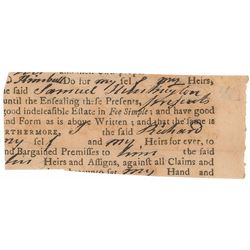 Kimball Do for my self my Heirs,
he said Samuel Etherington
until the Ensealing these Presents,
good indefeasible Estate in Fee Simple; and have good
and Form as is above Written; and that the same is
URTHERMORE, I the said Richard
my self and my Heirs for ever, to
and Bargained Premisses to him the said
Heirs and Assigns, against all Claims and
set my Hand and